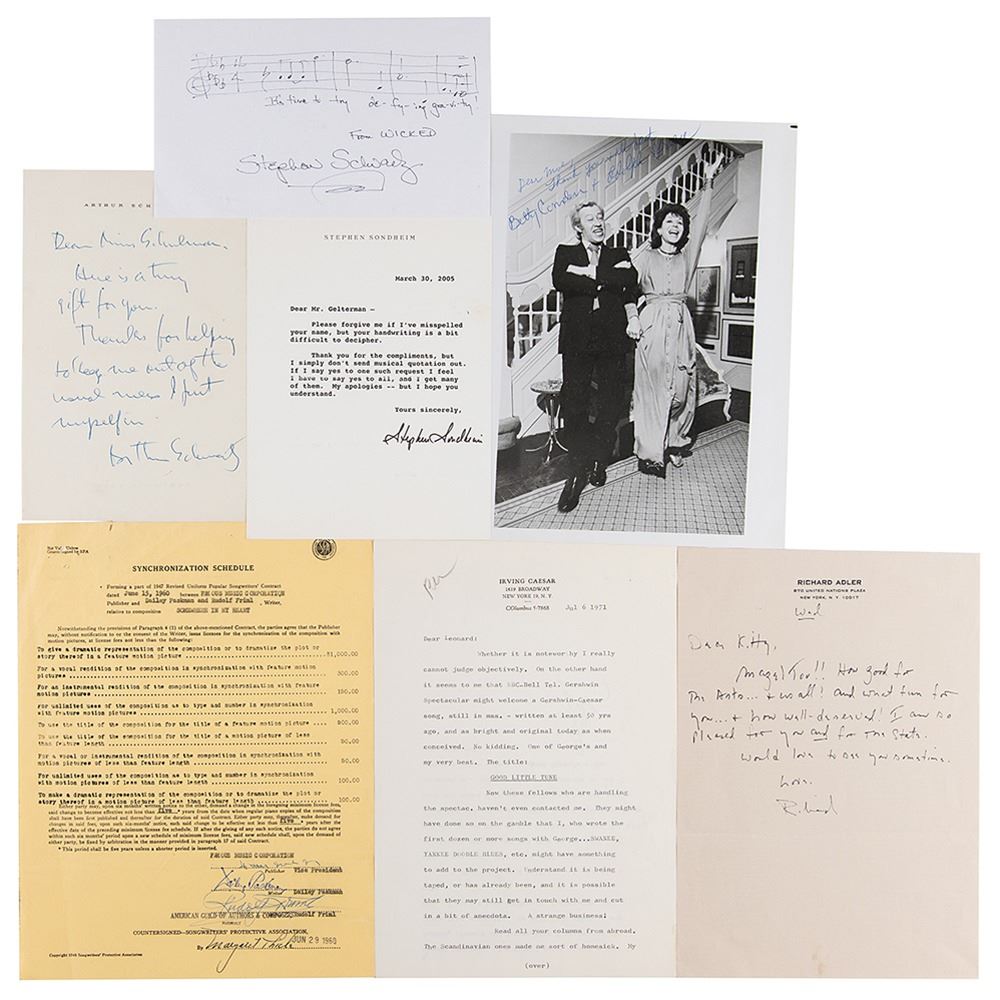 It's time to try de-fy-ing gra-vity!
From WICKED
Stephen Schwartz
ARTHUR SCH
Dear Miss
Here is a tiny
gift for you.
Thanks for helping
to keep me out of the
usual mess I put
myself in
Arthur Schwartz
STEPHEN SONDHEIM
March 30, 2005
Dear Mr. Gelterman -
Please forgive me if I've misspelled
your name, but your handwriting is a bit
difficult to decipher.
Thank you for the compliments, but
I simply don't send musical quotation out.
If I say yes to one such request I feel
I have to say yes to all, and I get many
of them. My apologies -- but I hope you
understand.
Yours sincerely,
Stephen Sondheim
Dear
Thank you
Betty Comden +
SYNCHRONIZATION SCHEDULE
Forming a part of 1947 Revised Uniform Popular Songwriters' Contract
dated June 15, 1960 between FAMOUS MUSIC CORPORATION
Publisher and Dailey Paskman and Rudolf Friml, Writer,
relative to composition SOMEWHERE IN MY HEART
Notwithstanding the provisions of Paragraph of the above-mentioned Contract, the parties agree that the Publisher
may, without notification to or the consent of the Writer, issue licenses for the synchronization of the composition with
motion pictures, at license fees not less than the following:
To give a dramatic representation of the composition or to dramatize the plot or
story thereof in a feature motion picture $1,000.00
For a vocal rendition of the composition in synchronization with feature motion
pictures 300.00
For an instrumental rendition of the composition in synchronization with feature
motion pictures 150.00
For unlimited uses of the composition as to type and number in synchronization
with feature motion pictures 1,000.00
To use the title of the composition for the title of a feature motion picture 500.00
To use the title of the composition for the title of a motion picture of less
than feature length 50.00
For a vocal or instrumental rendition of the composition in synchronization with
motion pictures of less than feature length 50.00
For unlimited uses of the composition as to type and number in synchronization
with motion pictures of less than feature length 100.00
To make a dramatic representation of the composition or to dramatize the plot or
story thereof in a motion picture of less than feature length 100.00
* This period shall be five years unless a shorter period is inserted.
FAMOUS MUSIC CORPORATION
Publisher Vice President
Dailey Paskman
Dailey Paskman
Rudolf Friml
AMERICAN GUILD OF AUTHORS & COMPOSERS Rudolf Friml
COUNTERSIGNED—SONGWRITERS' PROTECTIVE ASSOCIATION,
By Margaret JUN 29 1960
Copyright 1948 Songwriters' Protective Association
IRVING CAESAR
1619 BROADWAY
NEW YORK 19, N. Y.
COlumbus 5-7868 Jul 6 1971
Dear Leonard:
Whether it is noteworthy I really
cannot judge objectively. On the other hand
it seems to me that NBC.Bell Tel. Gershwin
Spectacular might welcome a Gershwin-Caesar
song, still in mss. - written at least 50 yrs
ago, and as bright and original today as when
conceived. No kidding. One of George's and
my very best. The title:
GOOD LITTLE TUNE
Now these fellows who are handling
the spectac, haven't even contacted me. They might
have done so on the gamble that I, who wrote the
first dozen or more songs with George...SWANEE,
YANKEE DOODLE BLUES, etc, might have something
to add to the project. Understand it is being
taped, or has already been, and it is possible
that they may still get in touch with me and cut
in a bit of anecdota. A strange business!
Read all your columns from abroad.
The Scandinavian ones made me sort of homesick. My
(over)
RICHARD ADLER
870 UNITED NATIONS PLAZA
NEW YORK, N. Y. 10017
Wed
Dear Kitty,
Mazel Tov!! How good for
The Arts... + us all! and what fun for
you...+ how well-deserved! I am so
pleased for you and for the State.
Would love to see you sometime.
Love,
Richard